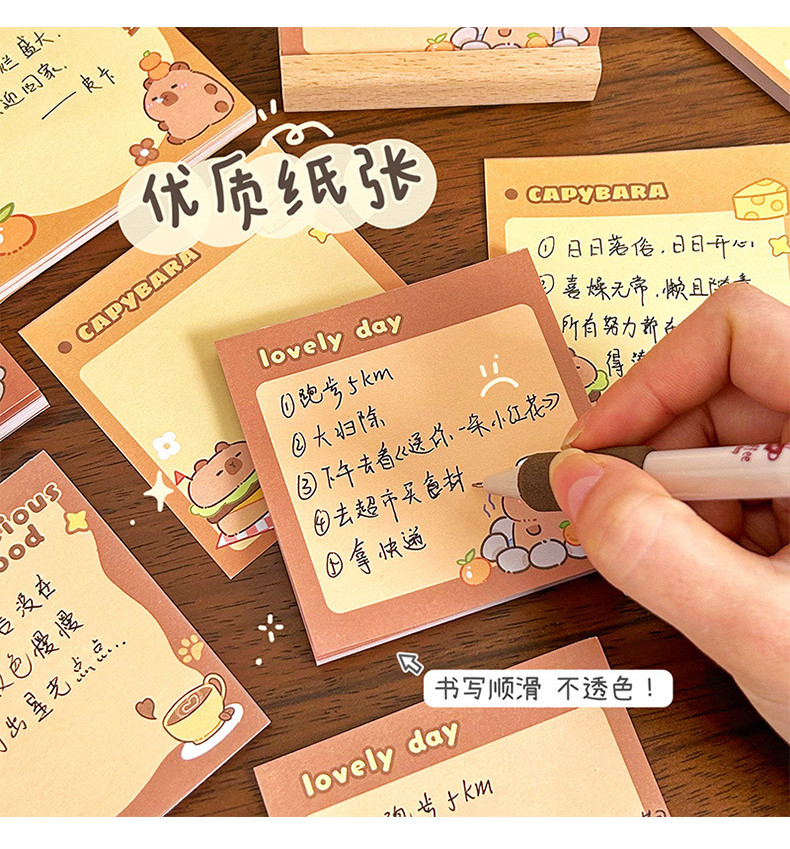 盛大.
回家.
——皮卡
优质纸张
CAPYBARA
CAPYBARA
① 日日落俗,日日开心
喜燥无常,懒且随意
所有努力都在
得
lovely day
①跑步5km
②大扫除
③下午去看《送你一朵小红花》
④去超市买食材
⑤拿快递
ious
ood
没在
色慢慢
出星光点点...
书写顺滑 不透色!
lovely day
跑步5km